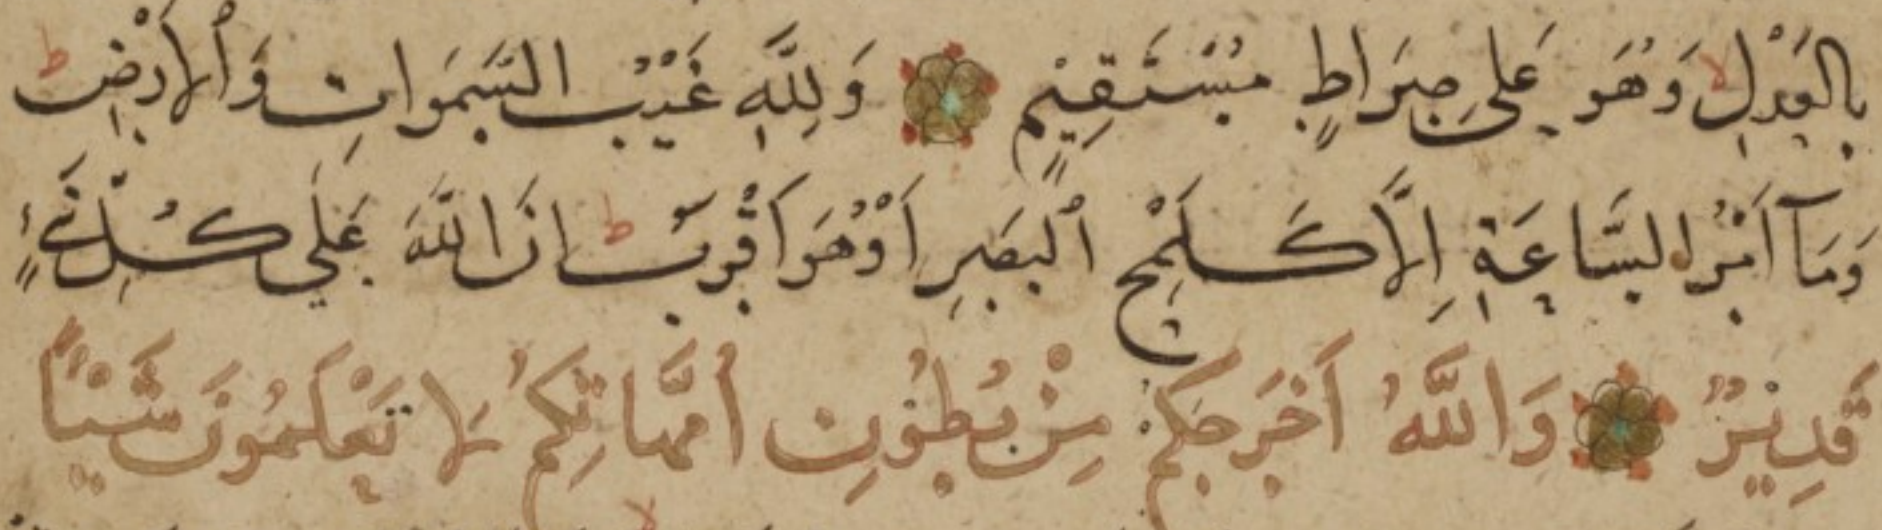 بِالْعَدْلِ ۙ وَهُوَ عَلَى صِرَاطٍ مُسْتَقِيْمٍ وَلِلَّهِ غَيْبُ السَّمَوَاتِ وَٱلْأَرْضِ ط
وَمَآ اَمْرُ السَّاعَةِ اِلَّا كَلَمْحِ ٱلْبَصَرِ اَوْهُوَ اَقْرَبُ ط اِنَّ اللَّهَ عَلَى كُلِّ شَيْءٍ
قَدِيْرٌ وَاللَّهُ اَخْرَجَكُمْ مِنْ بُطُوْنِ اُمَّهَاتِكُمْ لَا تَعْلَمُوْنَ شَيْـًٔا